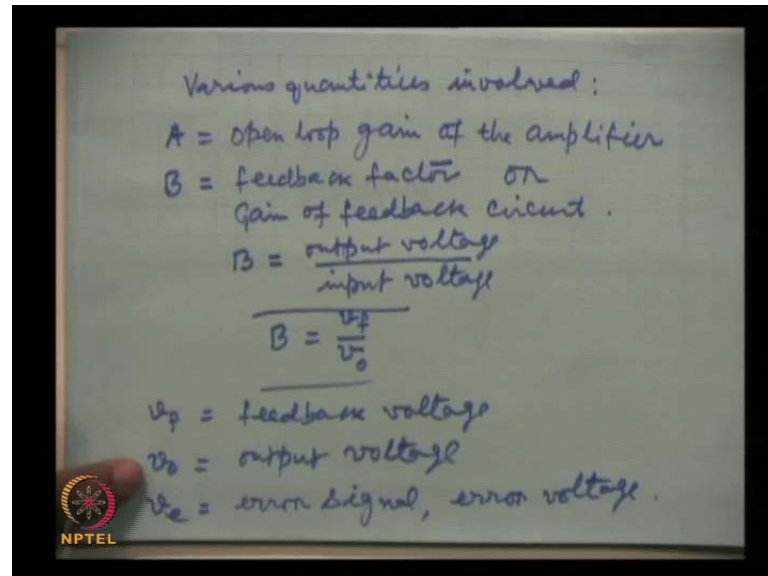 Various quantities involved:
A = open loop gain of the amplifier
B = feedback factor or
Gain of feedback circuit.
B = output voltage
input voltage
B = v_f
v_o
v_f = feedback voltage
v_o = output voltage
v_e = error signal, error voltage.
NPTEL